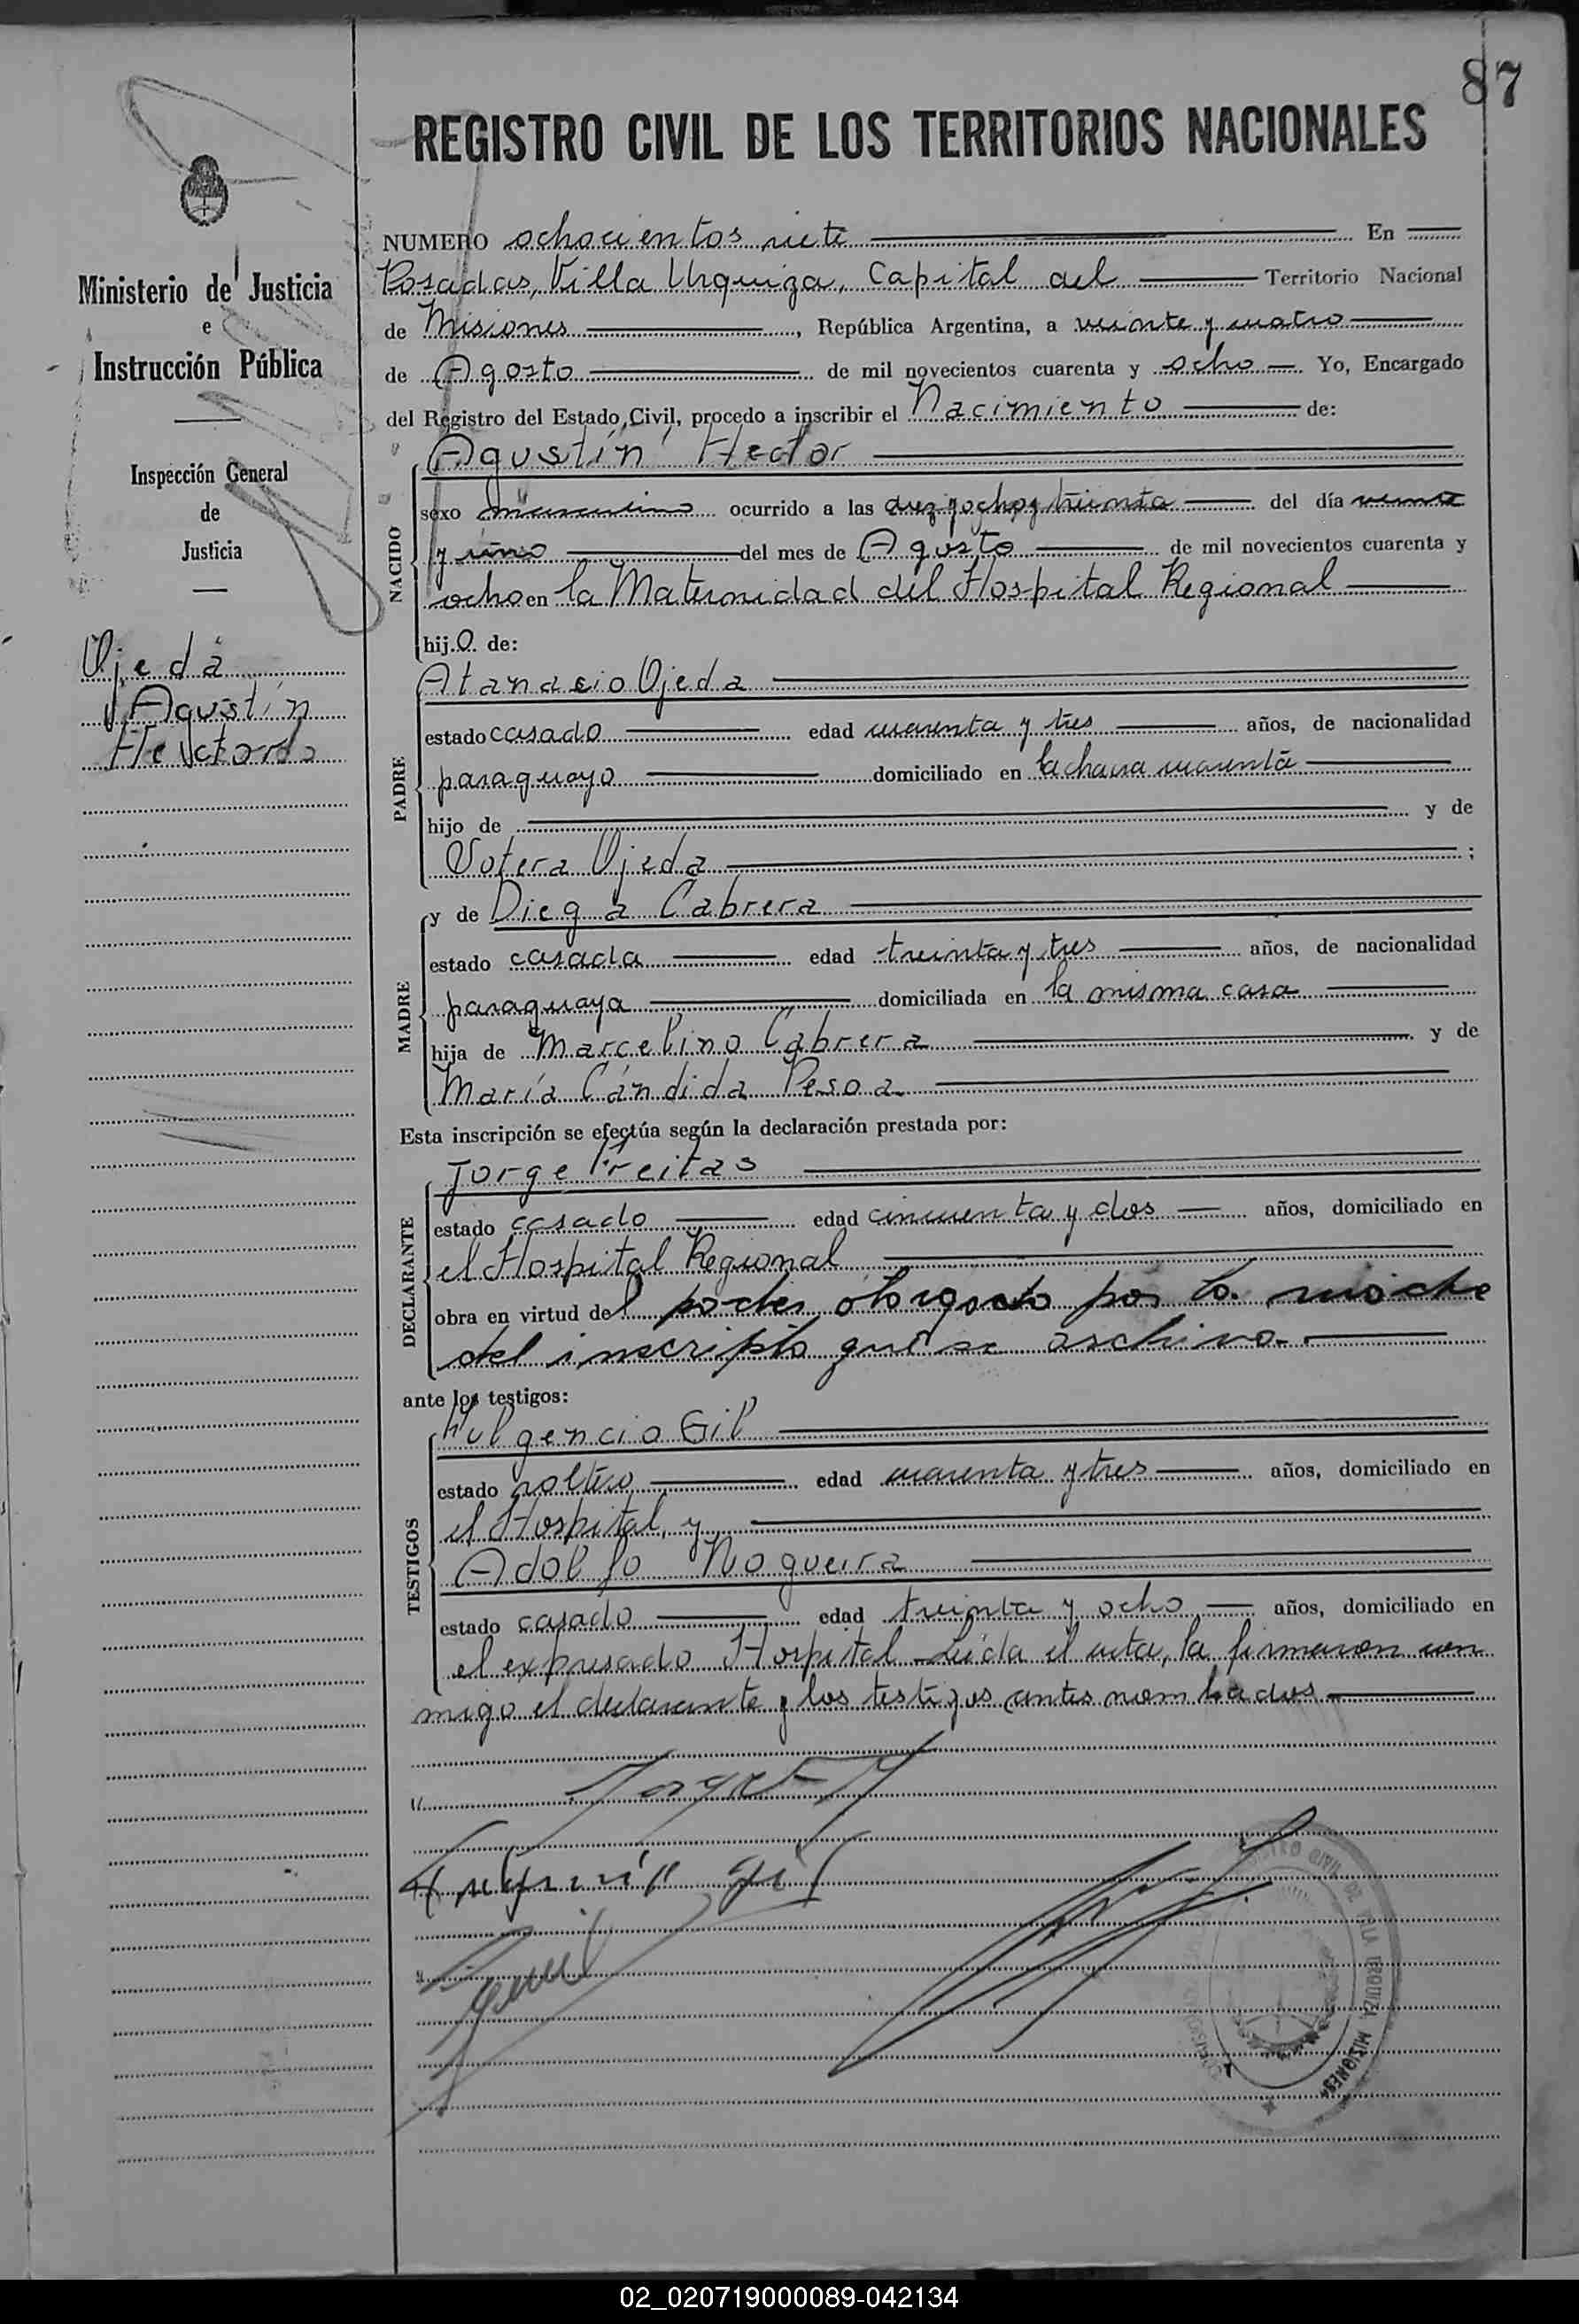 87
REGISTRO CIVIL DE LOS TERRITORIOS NACIONALES
Ministerio de Justicia
e
Instrucción Pública
Inspección General
de
Justicia
Ojeda
Agustín
Hector
NUMERO ochocientos siete En
Posadas, Villa Urquiza, Capital del Territorio Nacional
de Misiones, República Argentina, a veinte y cuatro
de Agosto de mil novecientos cuarenta y ocho Yo, Encargado
del Registro del Estado Civil, procedo a inscribir el Nacimiento de:
Agustín Hector
NACIDO
sexo masculino ocurrido a las diez y ocho y treinta del día veinte
y uno del mes de Agosto de mil novecientos cuarenta y
ocho en la Maternidad del Hospital Regional
hijo de:
Atanacio Ojeda
PADRE
estado casado edad cuarenta y tres años, de nacionalidad
paraguayo domiciliado en la chacra cuarenta
hijo de y de
Votera Ojeda ;
MADRE
y de Diega Cabrera
estado casada edad treinta y tres años, de nacionalidad
paraguaya domiciliada en la misma casa
hija de Marcelino Cabrera y de
María Cándida Pesoa
Esta inscripción se efectúa según la declaración prestada por:
Jorge Freitas
DECLARANTE
estado casado edad cincuenta y dos años, domiciliado en
el Hospital Regional
obra en virtud del poder otorgado por la madre
del inscripto que se archiva.
ante los testigos:
Fulgencio Gil
TESTIGOS
estado soltero edad cuarenta y tres años, domiciliado en
el Hospital, y
Adolfo Nogueira
estado casado edad treinta y ocho años, domiciliado en
el expresado Hospital. Leida el acta, la firmaron con
migo el declarante y los testigos antes nombrados.
Jorge
Fulgencio Gil
CIVIL DE VILLA URQUIZA MISIONES
02_020719000089-042134